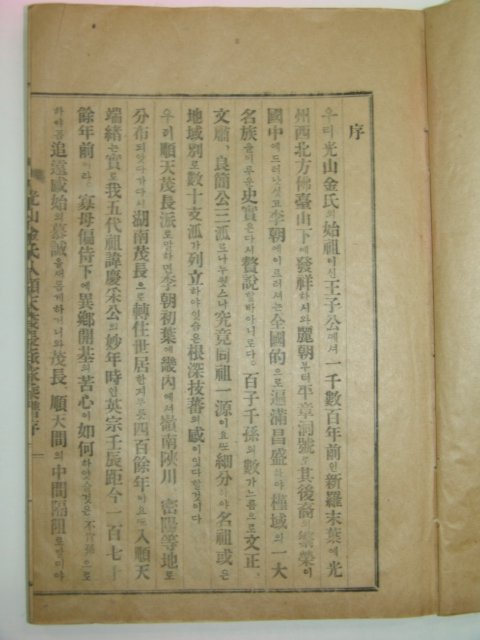 序
우리光山金氏의始祖이신王子公께서一千數百年前인新羅末葉에光
州西北方佛臺山下에發祥하시와麗朝부터平章洞號로其後裔의繁榮이
國中에드러나섯고李朝에이르러서는全國的으로遍滿昌盛하야槿域의一大
名族을이루운史實은다시贅說할바아니로다。百子千孫의數가느름으로文正、
文肅、良簡公三派로나누웟스나究竟同祖一源이요또細分하야名祖或은
地域別로數十支派가列立하야잇슴은根深枝蕃의感이잇다할것이다
우리順天茂長派로말하면李朝初葉에畿內에서嶺南陜川、密陽等地로
分布되엿다가다시湖南茂長으로轉住世居한제무릇四百餘年이요또入順天
端緒는實로我五代祖諱慶采公의妙年時한英宗壬辰距今一百七十
餘年前이라。寡母偏侍下에異鄕開基의苦心이如何하엿슬것은不肖孫으로
하야곰追遠感始의慕誠을새롭게하거니와茂長、順天間의中間臨阻로말미아
光山金氏入順天茂長派家乘譜序